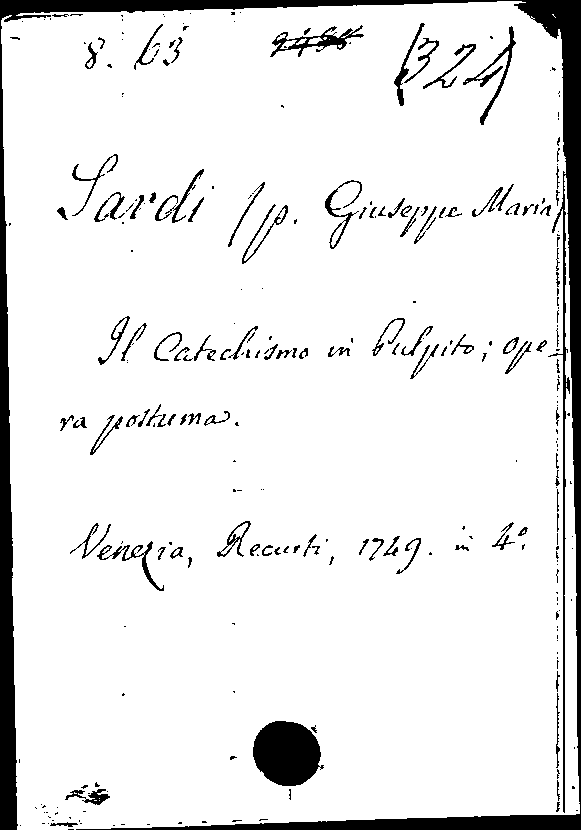 8. 63 (324)
Sardi (p. Giuseppe Maria)
Il Catechismo in Pulpito; ope=
ra postuma.
Venezia, Recurti, 1749. in 4º.